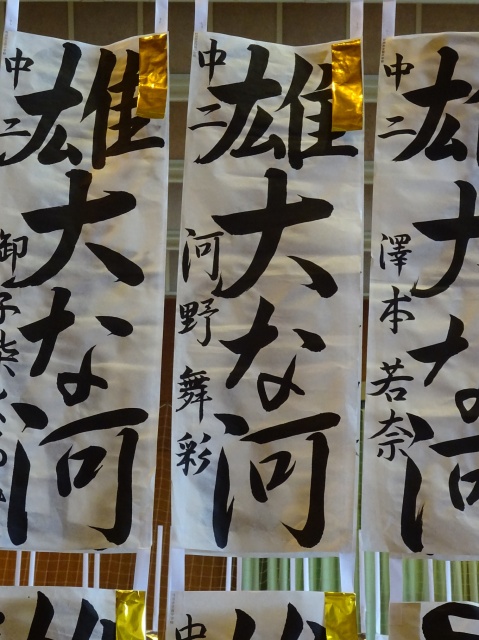 雄大な河
中二 河野舞彩
雄大な河
中二
雄大な河
中二 澤本若奈
中